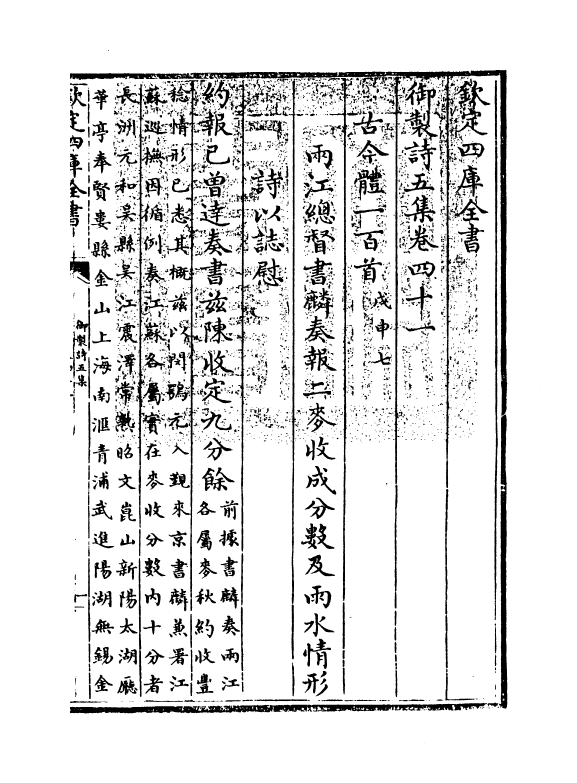 欽定四庫全書
御製詩五集卷四十一
古今體一百首戊申七
兩江總督書麟奏報二麥收成分數及雨水情形
詩以誌慰
約報已曾達奏書兹陳收定九分餘前據書麟奏兩江
各屬麥秋約收豐
稔情形已悉其概兹以閔鶚元入覲來京書麟兼署江
蘇廵撫因循例奏江蘇各屬實在麥收分數内十分者
長洲元和吴縣吴江震澤常熟昭文崑山新陽太湖㕔
華亭奉賢婁縣金山上海南滙青浦武進陽湖無錫金
欽定四庫全書
御製詩五集
一